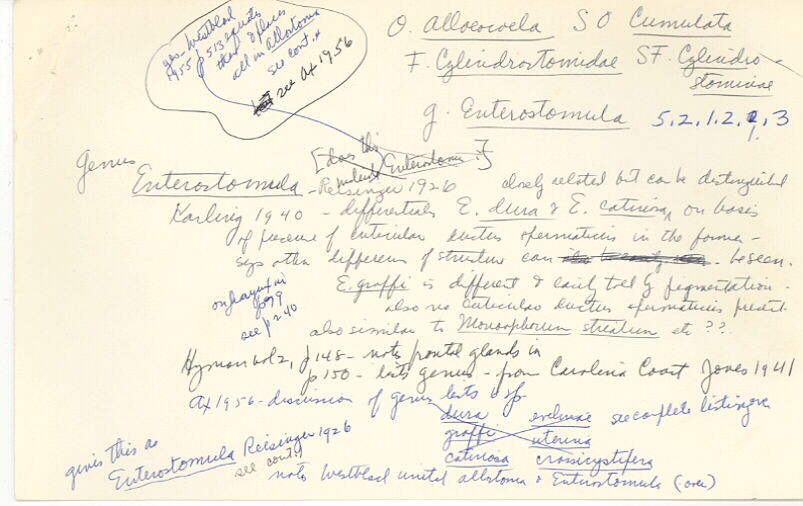 O. Alloeocoela SO Cumulata
F. Cylindrostomidae SF. Cylindro-
stominae
g. Enterostomula 5,2,1,2,1,3
yes - Westblad
1955 p 513 equate
them & places
all in Allostoma
see cont. *
see Ax 1956
[does this
include Enterostoma?]
Genus
Enterostomula - Reisinger 1926 closely related but can be distinguished
Karling 1940 - differentiates E. dura & E. catinosa, on basis
of presence of cuticular ductus spermaticus in the former -
says other differences of structure can be seen.
E. graffi is different & easily told by pigmentation -
also no cuticular ductus spermaticus present.
also similar to Monoophorum striatum etc ??.
on pharynx in
p 99
see p 240
Hyman vol 2, p 148 - notes frontal glands in
p 150 - lists genus - from Carolina Coast Jones 1941
Ax 1956 - discussion of genus lists 6 sp
dura evelinae see complete listing over
graffi uterina
catinosa crassicystifera
gives this as
Enterostomula Reisinger 1926
see cont.
note Westblad united allostoma & Enterostomula (over)